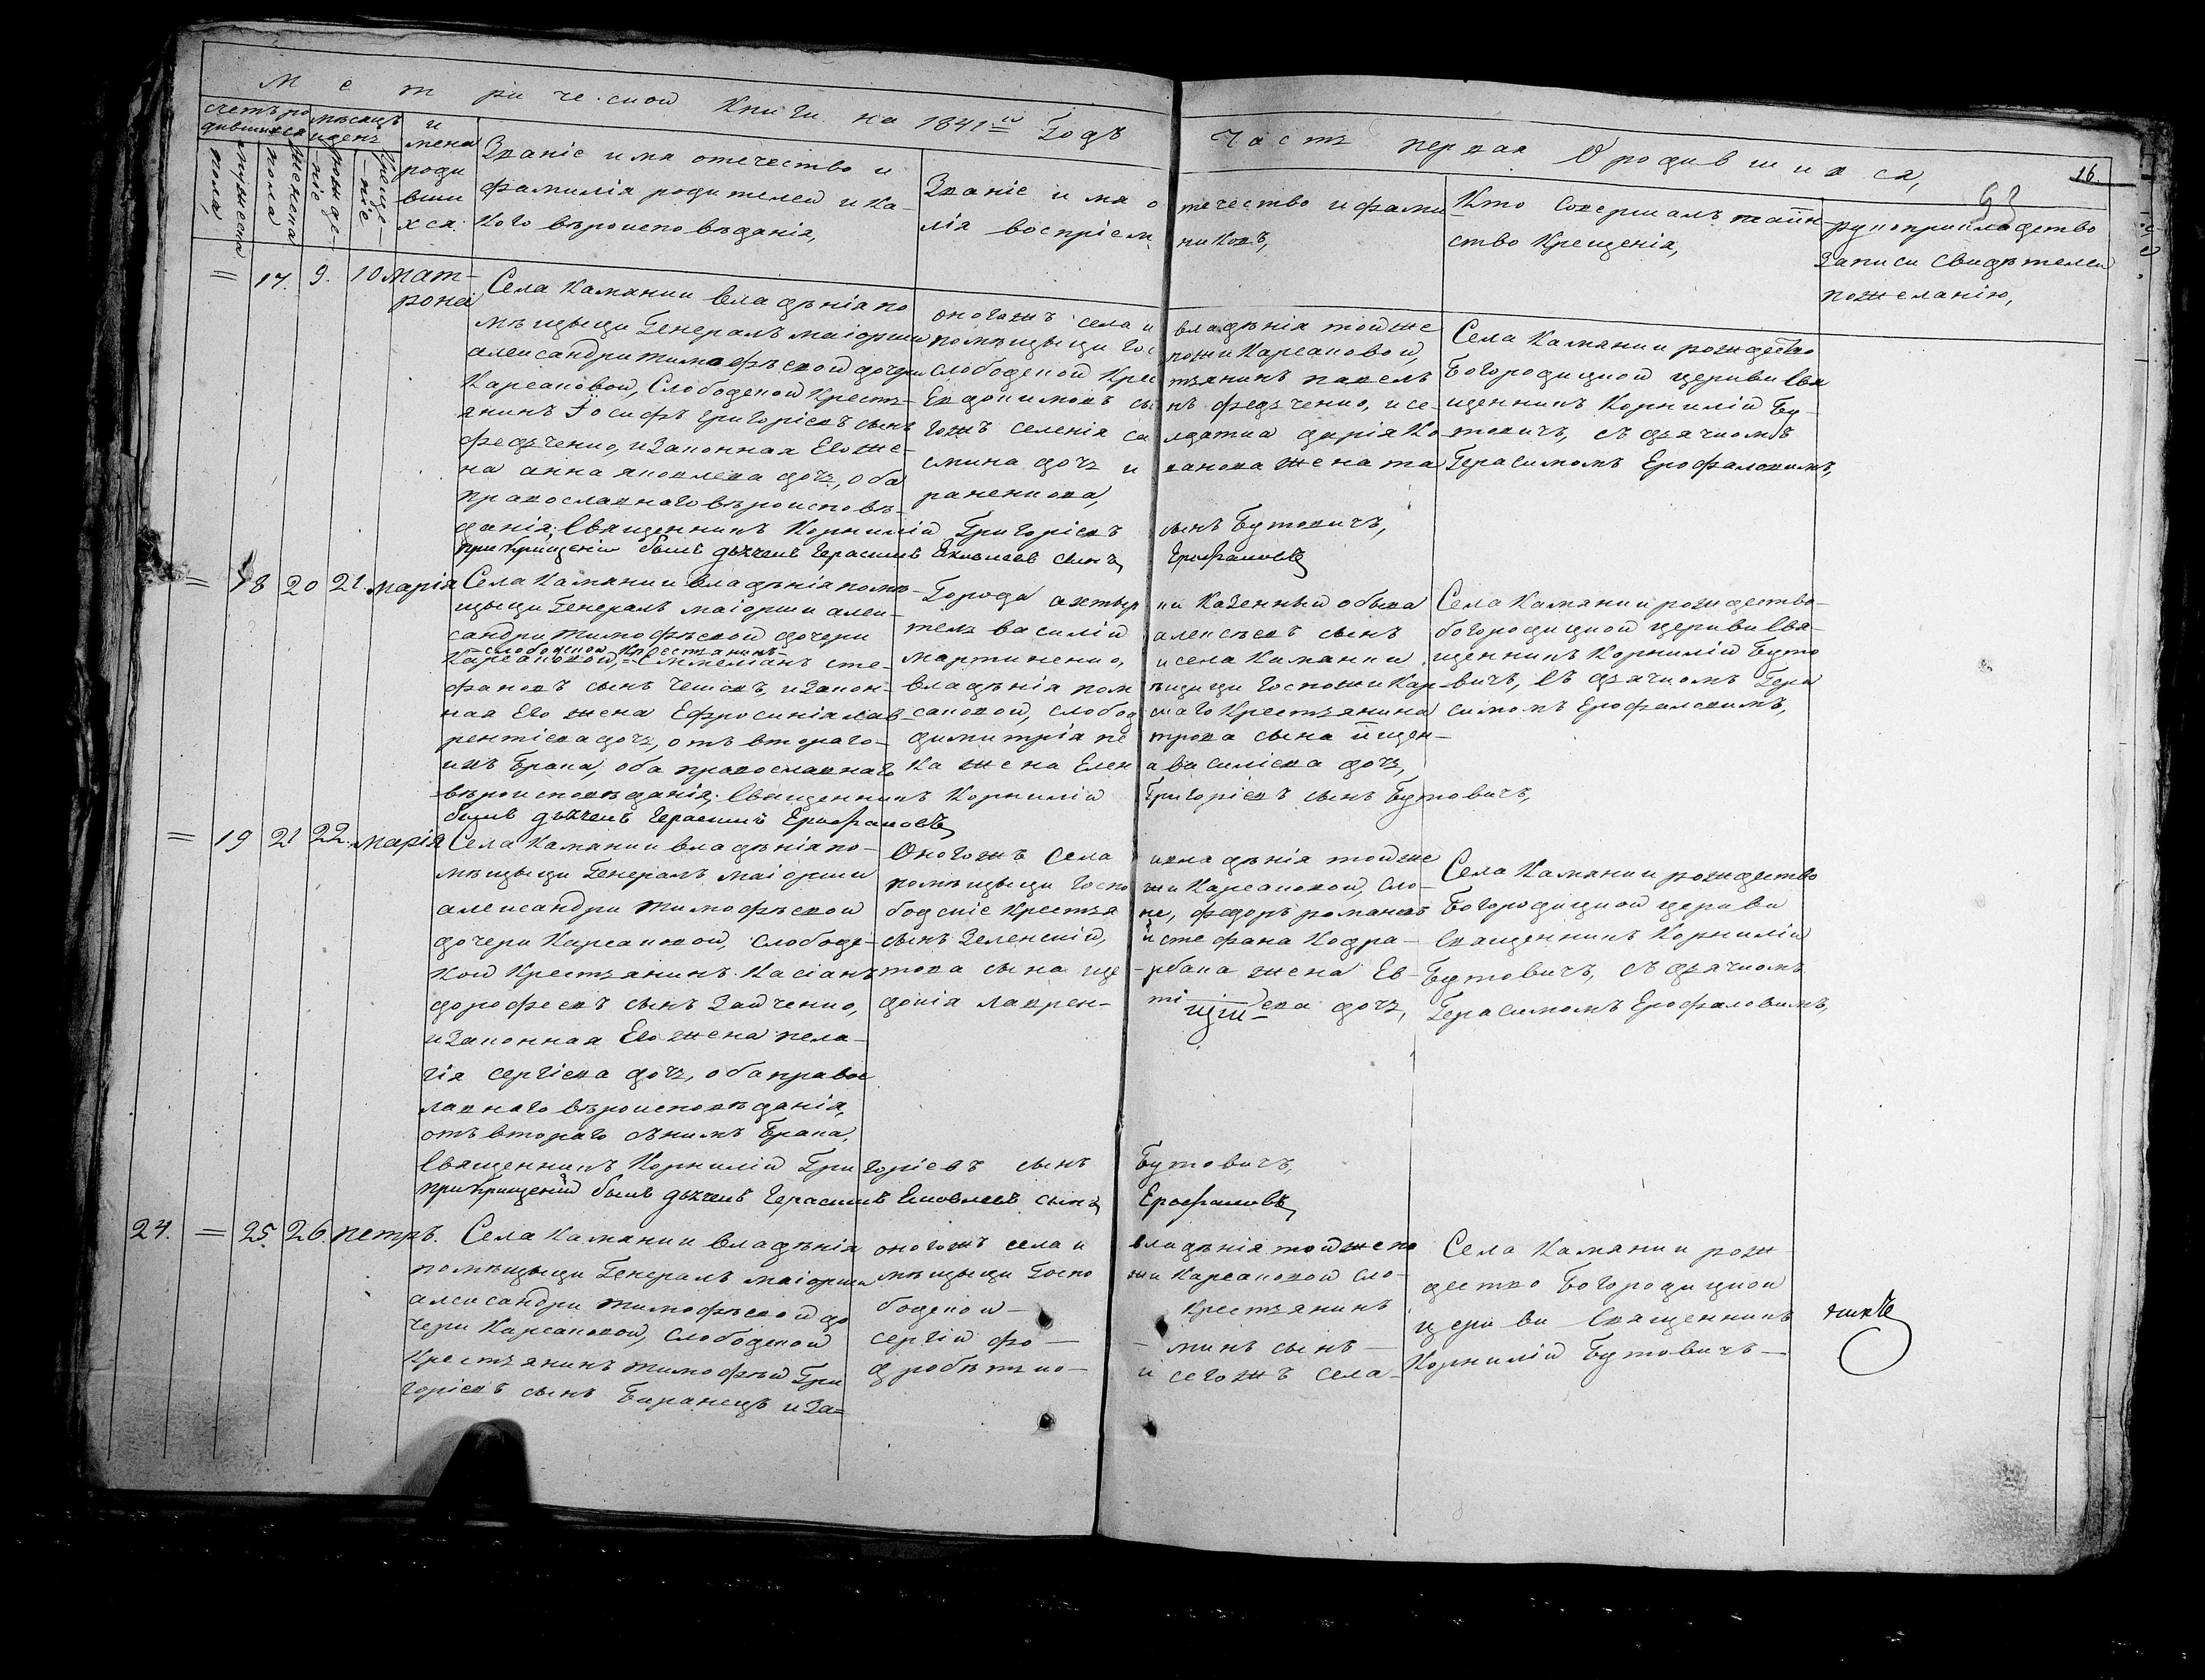 Метрической Книги на 1841й Годъ
Часть первая О родившихся,
16.
53
счетъ ро
дившихся
мѣсяцъ
и день
и
мена
роди
вши
хся.
мужеска
пола,
женска
пола
рожде-
ніе
Креще-
ніе
Званіе имя отечество и
фамилія родителей и ка-
кого вѣроисповѣданія,
Званіе имя о
лія воспріем
течество ифами
никовъ,
Кто совершалъ таин-
ство Крещенія,
рукоприкладство
записи свидѣтелей
пожеланію,
= 17. 9. 10 Мат-
рона
Села Камянки владѣнія по
мѣщыци Генералъ маіорши
александри тимофѣевой дочери
Карсаковой, Слободской Кресть-
янинъ Іосифъ григоріевъ сынъ
федченко, изаконная Его же-
на анна яковлева дочь, оба
православнаговѣроисповѣ-
данія; Священникъ Корнилій Григоріевъ
при крищении былъ дьячекъ Герасимъ Яковлевъ сынъ
оногожъ села и
помѣщыци гос
слободской Крес
Евдокимовъ сы
гожъ селенія со
смина дочь и
раненкова,
владѣнія тойже
пожи Карсаковой,
тьянинъ павелъ
нъ федченко, исе-
лдатка дарія Ко
ванова жена та
сынъ Бутовичъ,
Ерофаловъ
Села Камянки рождество
Богородицкой церкви Свя
щенникъ Корнилій Бу-
товичъ, съ дьячкомъ
Герасимомъ Ерофаловимъ,
= 18 20 21. марія
Села Камянки владѣнія помѣ-
щыци Генералъ маіорши алек-
сандри тимофѣевой дочери
слободской Крестьянинъ
Карсаковой, Емиліанъ сте-
фановъ сынъ Чешовъ, изакон-
ная Его жена Ефросинія лав-
рентіева дочь, отъ втораго-
ихъ брака, оба православнаго
вѣроисповѣданія; Священникъ Корнилій
былъ дьячекъ Герасимъ Ерофаловъ
Города ахтыр
тель василій
мартиненко,
владѣнія пом
саковой, слобод
димитрія пе
ка жена Елен
ки Казенный обыва
алексѣевъ сынъ
исела Камянки
ѣщици госпожи Кар-
скаго Крестьянина
трова сына ищен-
а василіева дочь,
Григоріевъ сынъ Бутовичъ,
Села Камянки рождество-
богородицкой церкви Свя-
щенникъ Корнилій Буто
вичъ, съ дьячкомъ Гера
симомъ Ерофаловимъ,
= 19 21 22. марія
Села Камянки владѣнія по-
мѣщыци Генералъ маіорши
александри тимофѣевой
дочери Карсаковой, слободс-
кой Крестьянинъ Касіанъ
дорофеевъ сынъ Зайченко,
изаконная Его жена пела-
гія сергіева дочь, оба правос
лавнаго вѣроисповѣданія,
отъ втораго снимъ брака,
Священникъ Корнилій Григоріевъ сынъ
при крищении былъ дьячекъ Герасимъ Яковлевъ сынъ
Оногожъ Села
помѣщыци госпо
бодскіе Крестья
сынъ Зеленскій,
това сына ще
докія лаврен-
ивладѣнія тойже
жи Карсаковой, сло-
не, федоръ романовъ
и стефана Кодра-
рбака жена Ев-
тіева дочь,
Бутовичъ,
Ерофаловъ
Села Камянки рождество
Богородицкой церкви
Священникъ Корнилій
Бутовичъ, съ дьячкомъ
Герасимомъ Ерофаловимъ,
24. = 25. 26. петръ.
Села Камянки владѣнія
помѣщыци Генералъ маіорши
александри тимофѣевой до
чери Карсаковой, слободской
Крестьянинъ тимофѣй Гри
горіевъ сынъ Баранецъ иза=
оногожъ села и
мѣщыци госпо
бодской-
сергій фо-
дробѣтько-
владѣнія тойже по
жи Карсаковой сло-
Крестьянинъ
минъ сынъ-
и сегожъ села-
Села Камянки рож
дество Богородицкой
церкви Священникъ
Корнилій Бутовичъ-
никъ